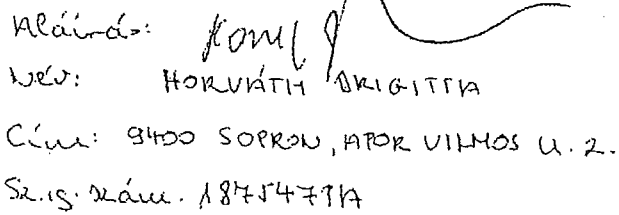 Aláírás:
Név: HORVÁTH BRIGITTA
Cím: 9400 SOPRON, APOR VILMOS U. 2.
Sz.ig. szám.